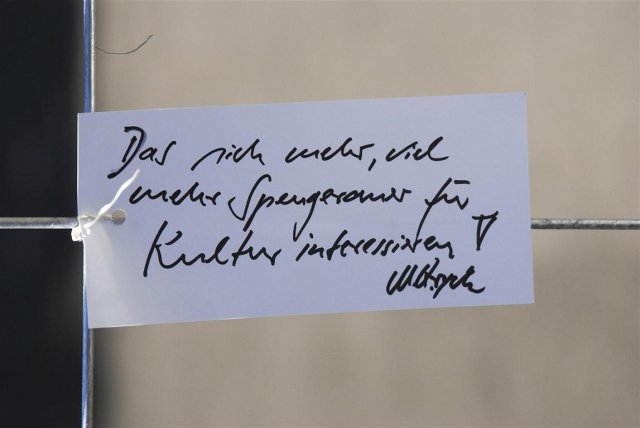 Das sich mehr, viel
mehr Spengeraner für
Kultur interessieren !